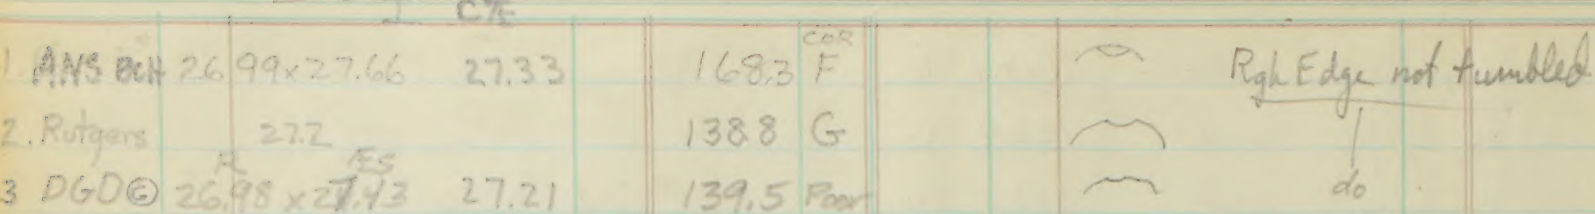 COR
1 ANS BCH 26.99x27.66 27.33 168.3 F Rgh Edge not tumbled
2. Rutgers 27.2 138.8 G
3 DGD© 26.98 x 27.43 27.21 139.5 Poor do